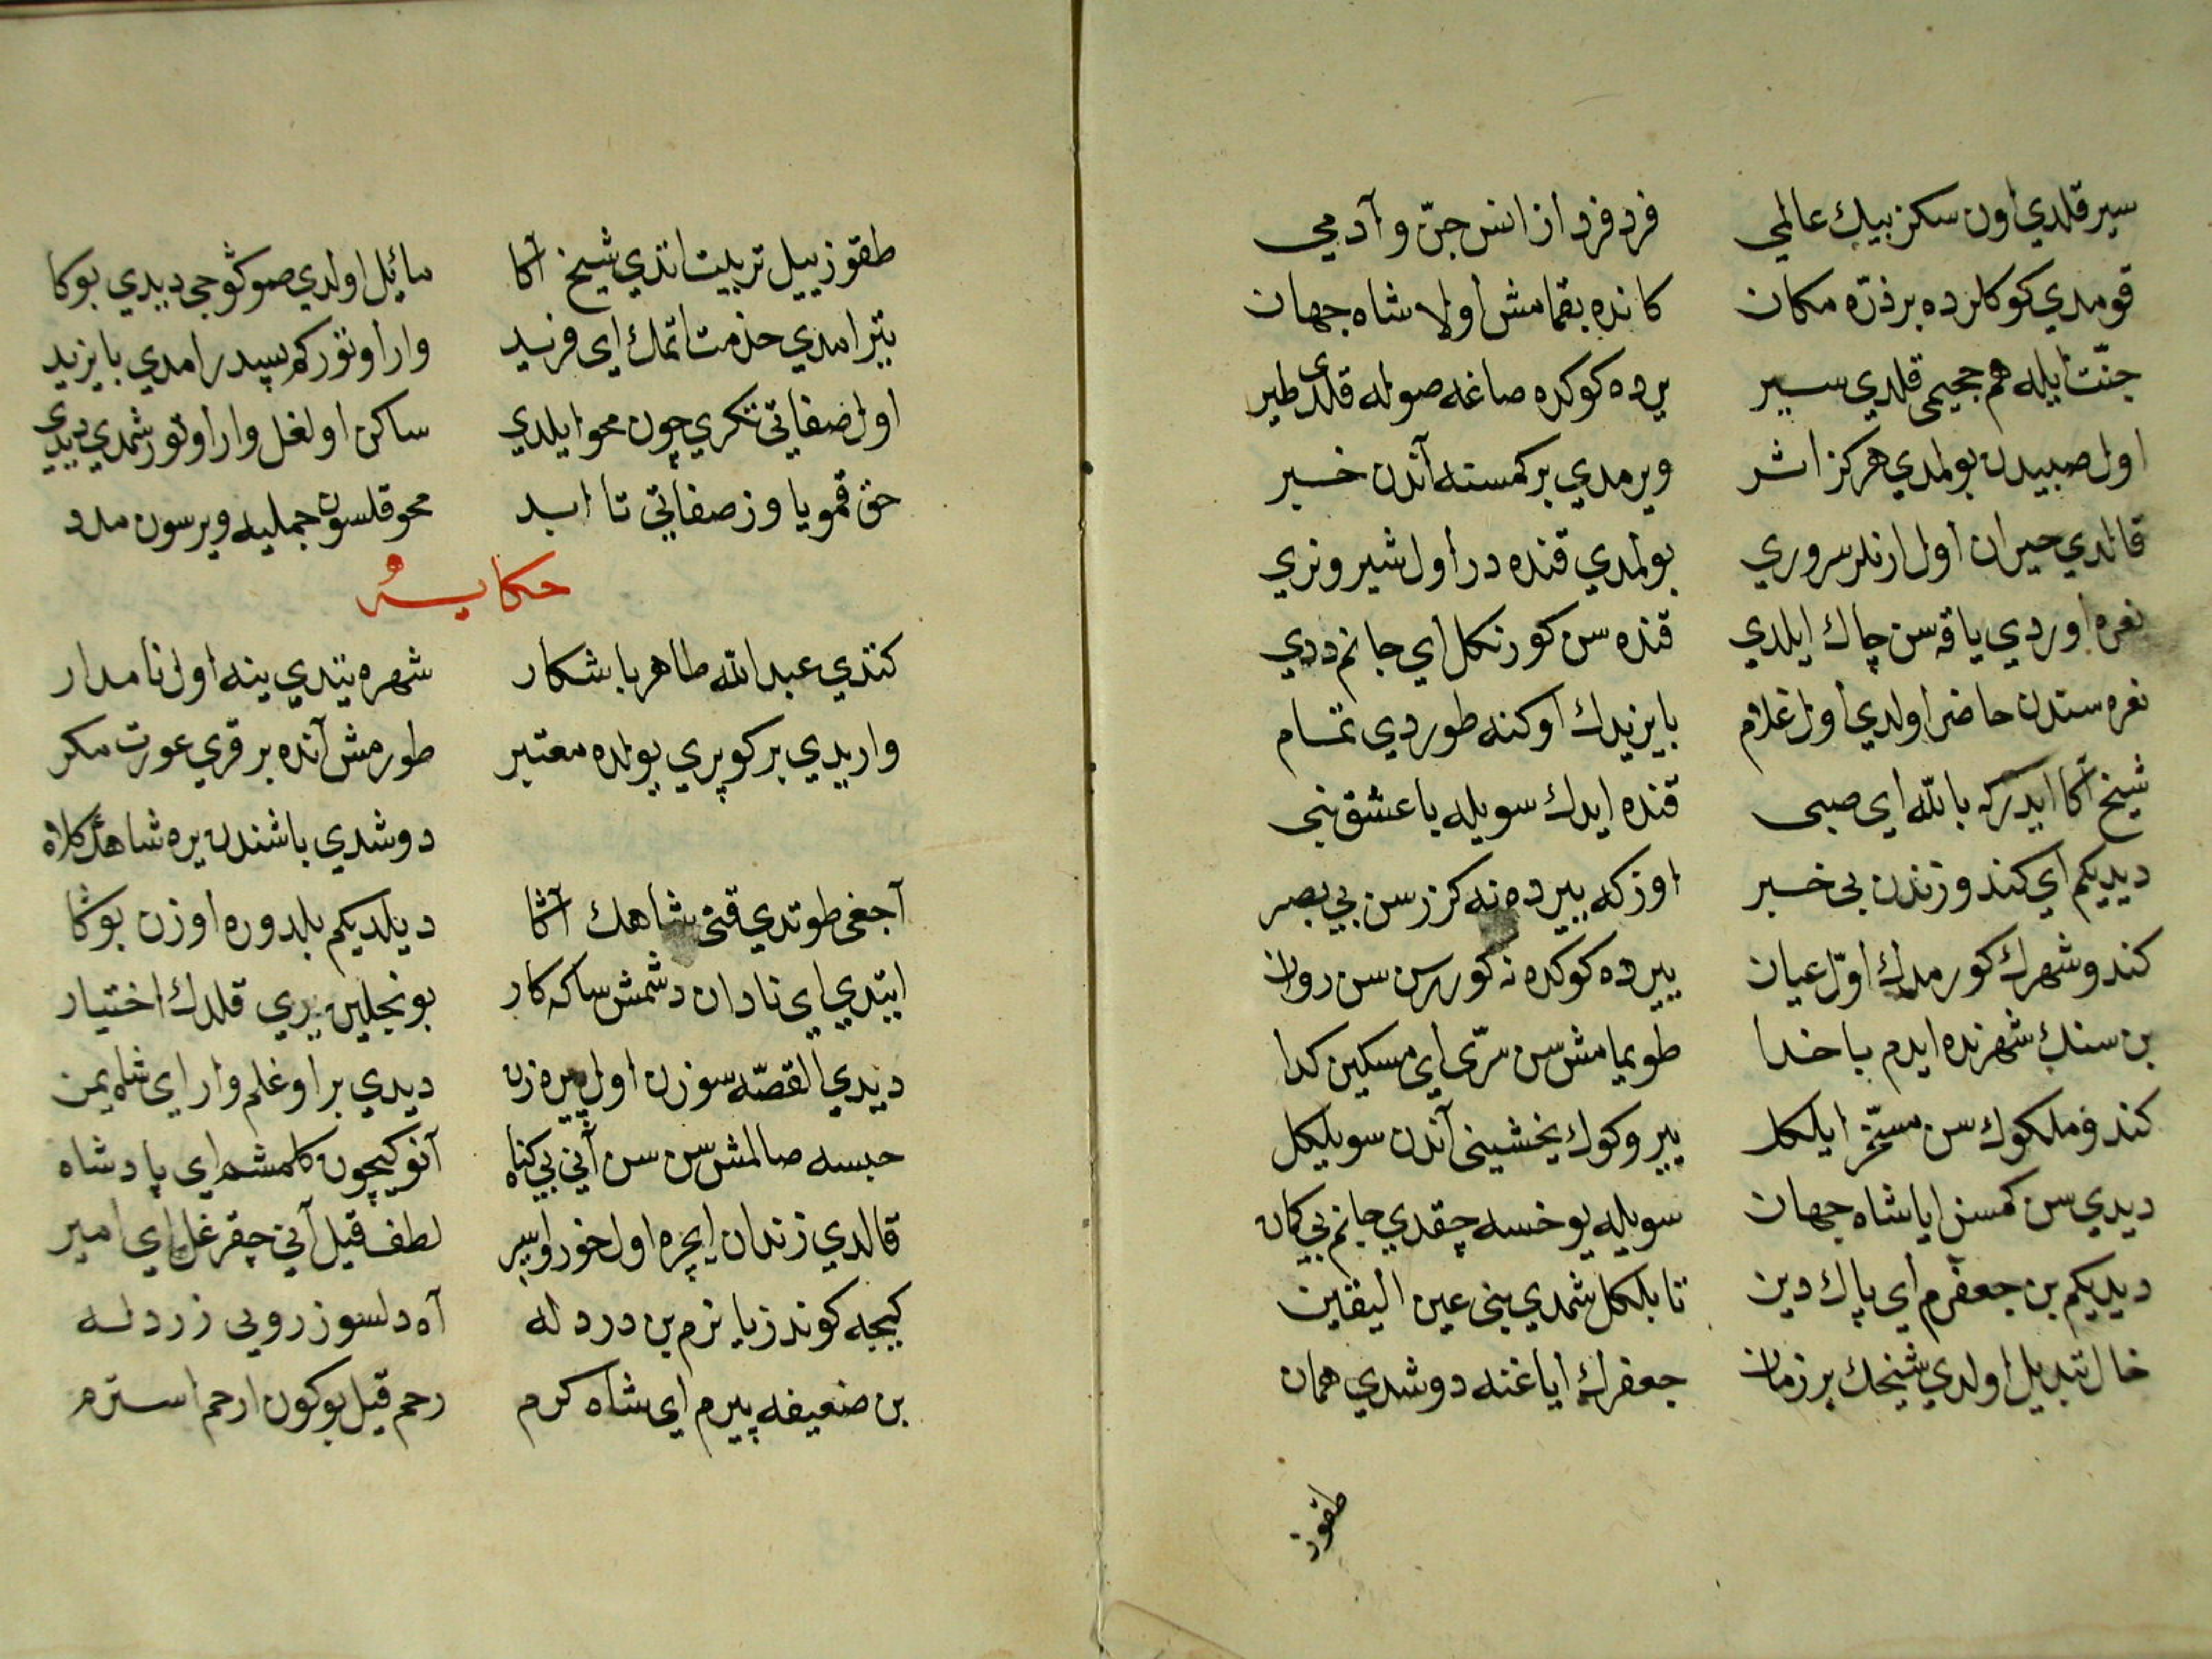 سير قلدي اون سكز بيك عالمي فرد فرد از انس جنّ و آدمي
قومدي كوكلرده بر ذرّه مكان كانده بقمامش اولا شاه جهان
جنّت ايله هم جحيمى قلدي سير يرده كوكده صاغه صوله قلدى طير
اول صبيدن بولمدي هركز اثر ويرمدي بر كمسنه آندن خبر
قالدي حيران اول ارنلر سروري بولمدي قنده در اول شير و نري
نعره اوردي ياقه سن چاك ايلدي قنده سن كورنكل اي جانم ددي
نعره ستدن حاضر اولدي اول غلام بايزيدك اوكنه طوردي تمام
شيخ آكا ايدركه بالله اي صبى قنده ايدك سويله يا عشق نبى
ديديكم اي كندوزندن بى خبر اوزكه ييرده نه كزرسن بي بصر
كندو شهرك كورمدك اوّل عيان ييرده كوكده نه كوررسن سن روان
بن سنك شهرنده ايدم با خدا طويمامش سن سرّى اي مسكين كدا
كندو ملكوك سن مسخّر ايلكل يير و كوك يخشينى آندن سويلكل
ديدي سن كمسن ايا شاه جهان سويله يوخسه چقدي جانم بي كمان
ديديكم بن جعفرم اي پاك دين تا بلكل شمدي بنى عين اليقين
حال تبديل اولدي شيخك بر زمان جعفرك اياغنه دوشدي همان
طقوز
طقوز ييل تربيت اتدي شيخ آكا مائيل اولدي صوكوجى ديدي بوكا
يتر امدي خدمت اتمك اي فريد وار اوتور كم پيدر امدي بايزيد
اول صفاتي تكري چون محو ايلدي ساكن اولغل وار اوتور شمدي ديدى
حق قمو ياوز صفاتي تا ابد محو قلسون جمليه ويرسون مدد
حكاية
كتدي عبدالله طاهر با شكار شهره يتدي ينه اول نامدار
واريدي بر كوپري يولده معتبر طورمش آنده بر قري عورت مكر
دوشدي باشندن يره شاهك كلاه
آجغى طوتدي قتى شاهك آتا ديلديكم بلدوره اوزن بوكا
ايتدي اي نادان دشمش ساكه كار بونجلين يري قلدك اختيار
ديدي القصّه سوزن اول پيره زن ديدي بر اوغلم وار اي شاه يمن
حبسه صالمش سن سن آني بي كناه آنوكيچون كلمشم اي پادشاه
قالدي زندان ايچره اول خور و اسير لطف قيل آني چقرغل اي امير
كيجه كوندز يانرم بن درد له آه دلسوز روي زرد له
بن ضعيفه پيرم اي شاه كرم رحم قيل بوكون ارحم استرم